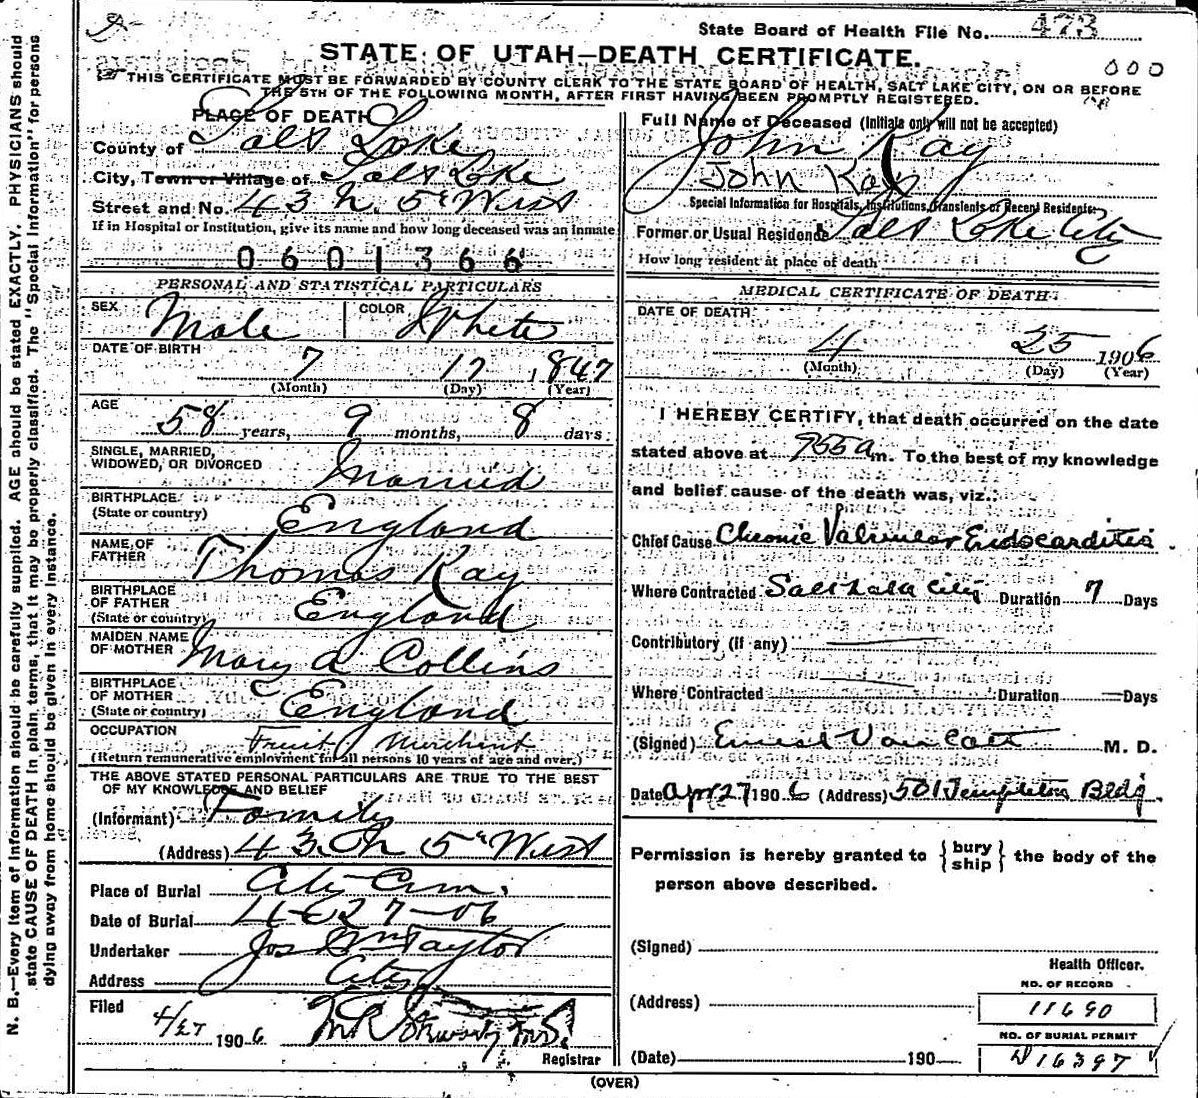 State Board of Health File No. 473
STATE OF UTAH—DEATH CERTIFICATE.
000
THIS CERTIFICATE MUST BE FORWARDED BY COUNTY CLERK TO THE STATE BOARD OF HEALTH, SALT LAKE CITY, ON OR BEFORE
THE 5TH OF THE FOLLOWING MONTH, AFTER FIRST HAVING BEEN PROMPTLY REGISTERED.
N. B.—Every item of information should be carefully supplied. AGE should be stated EXACTLY. PHYSICIANS should
state CAUSE OF DEATH in plain terms, that it may be properly classified. The "Special Information" for persons
dying away from home should be given in every instance.
PLACE OF DEATH
County of Salt Lake
City, Town or Village of Salt Lake
Street and No. 43 N. 5th West
If in Hospital or Institution, give its name and how long deceased was an inmate
0601366
PERSONAL AND STATISTICAL PARTICULARS
SEX Male COLOR White
DATE OF BIRTH
7 17 1847
(Month) (Day) (Year)
AGE
58 years, 9 months, 8 days
SINGLE, MARRIED,
WIDOWED, OR DIVORCED Married
BIRTHPLACE
(State or country) England
NAME OF
FATHER Thomas Kay
BIRTHPLACE
OF FATHER
(State or country) England
MAIDEN NAME
OF MOTHER Mary A Collins
BIRTHPLACE
OF MOTHER
(State or country) England
OCCUPATION Fruit Merchant
(Return remunerative employment for all persons 10 years of age and over.)
THE ABOVE STATED PERSONAL PARTICULARS ARE TRUE TO THE BEST
OF MY KNOWLEDGE AND BELIEF
(Informant) Family
(Address) 43 N 5th West
Place of Burial City Cem.
Date of Burial 4-27-06
Undertaker Jos Wm Taylor
Address City
Filed
4/27 1906
Registrar
Full Name of Deceased (Initials only will not be accepted)
John Kay
John Kay
Special Information for Hospitals, Institutions, Transients or Recent Residents
Former or Usual Residence Salt Lake City
How long resident at place of death
MEDICAL CERTIFICATE OF DEATH
DATE OF DEATH
4 25 1906
(Month) (Day) (Year)
I HEREBY CERTIFY, that death occurred on the date
stated above at 955 a m. To the best of my knowledge
and belief cause of the death was, viz.:
Chief Cause Chronic Valvular Endocarditis.
Where Contracted Salt Lake City Duration 7 Days
Contributory (if any)
Where Contracted Duration Days
(Signed) Ernest Van Cott M. D.
Date Apr 27 1906 (Address) 501 Templeton Bldg.
Permission is hereby granted to {bury
ship} the body of the
person above described.
(Signed)
Health Officer.
NO. OF RECORD
(Address) 11690
NO. OF BURIAL PERMIT
(Date) 190 D 16397
(OVER)